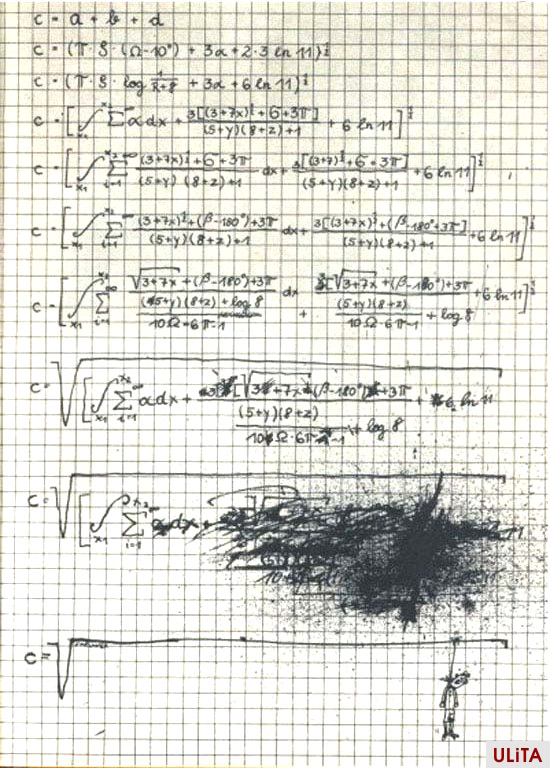 c = a + b + d
c = (π · S · (Ω-10°) + 3a + 2·3 ln 11)^½
c = (π · S · log 1/(x+8) + 3a + 6 ln 11)^½
c = [∫x₁^x₂ Σ^∞ α dx + 3[(3+7x)^½ + 6 + 3π] / ((5+y)(8+z)+1) + 6 ln 11]^½
c = [∫x₁^x₂ Σi=1^∞ ((3+7x)^½ + 6 + 3π) / ((5+y)(8+z)+1) dx + 3[(3+7)^½ + 6 + 3π] / ((5+y)(8+z)+1) + 6 ln 11]^½
c = [∫x₁^x₂ Σi=1^∞ ((3+7x)^½ + (β-180°)+3π) / ((5+y)(8+z)+1) dx + 3[(3+7x)^½ + (β-180°+3π] / ((5+y)(8+z)+1) + 6 ln 11]^½
c = [∫x₁^x₂ Σi=1^∞ (√(3+7x) + (β-180°)+3π) / ((5+y)(8+z) + log 8 / (10Ω-6π-1)) dx + 3[√(3+7x) + (β-180°)+3π / ((5+y)(8+z) / (10Ω·6π-1) + log 8) + 6 ln 11]^½
c = √[∫x₁^x₂ Σi=1^∞ α dx + 3[√(3+7x) (β-180°)+3π / ((5+y)(8+z) / (10Ω·6π-1) + log 8) + 6 ln 11
c = √[∫x₁^x₂ Σi=1^∞ dx +
c = √
ULiTA